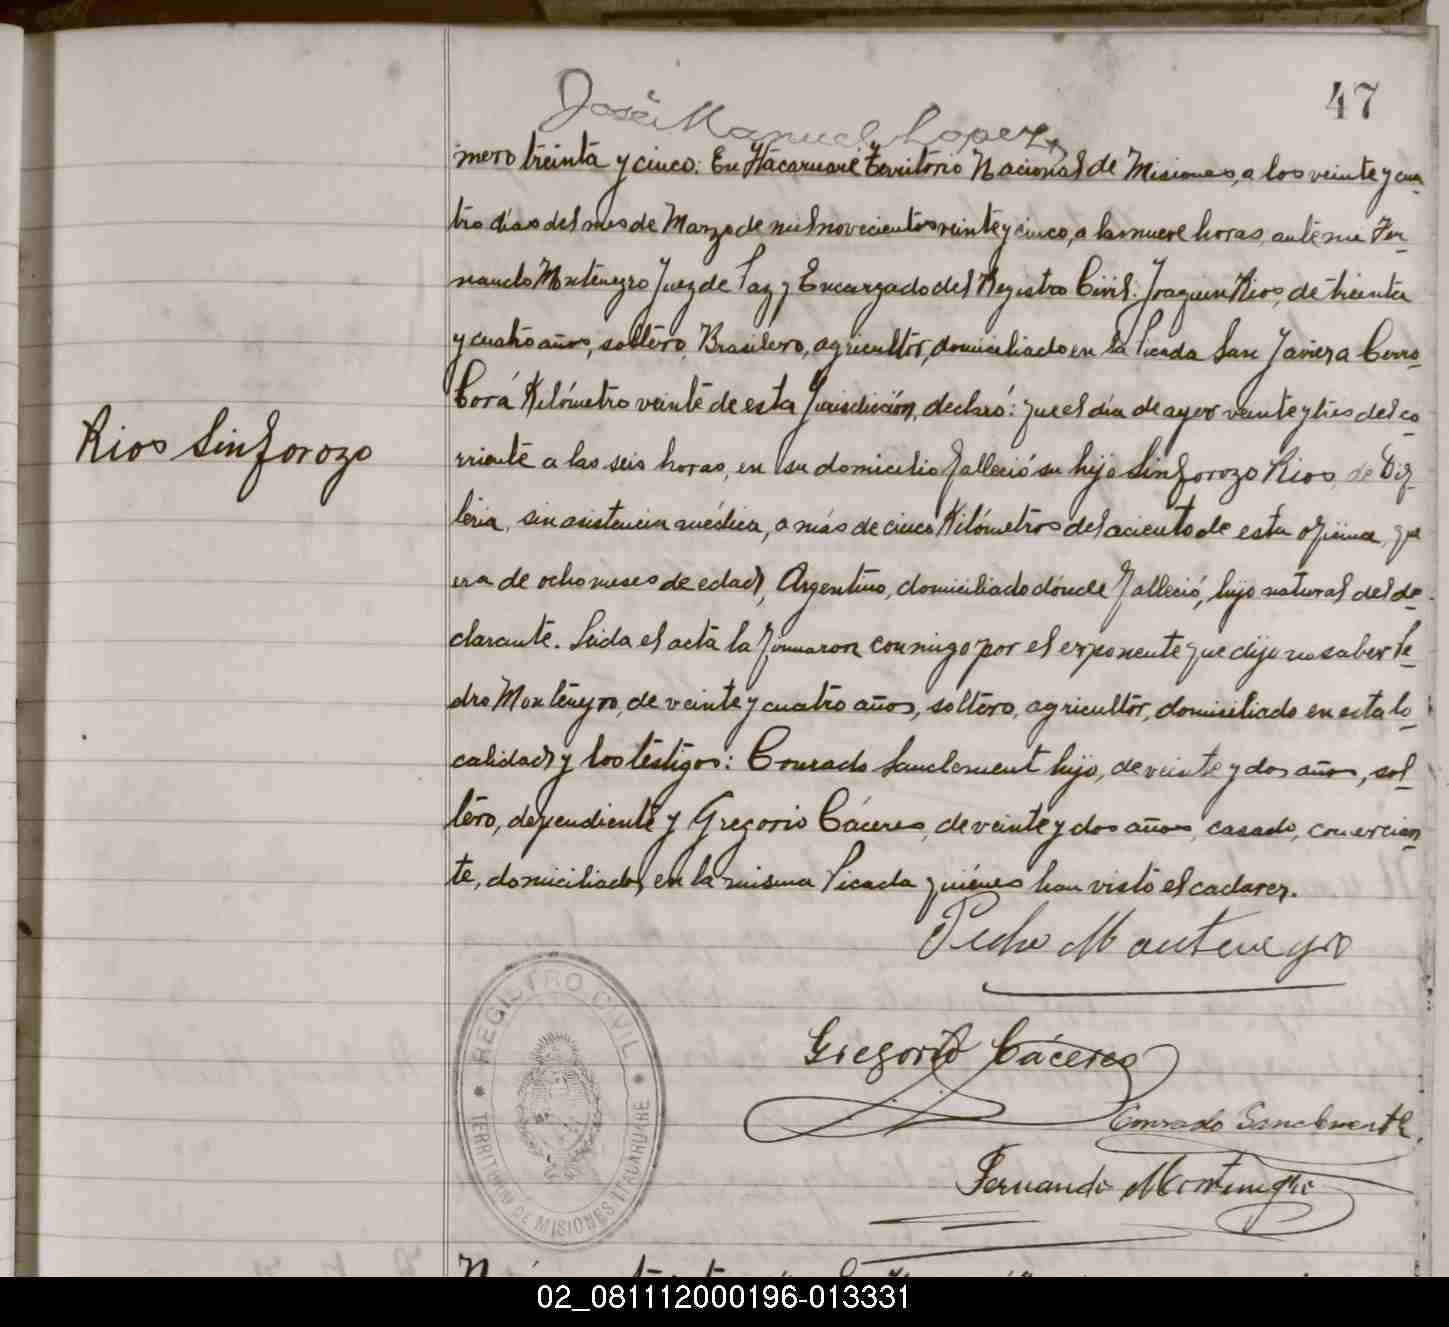 47
José Manuel Lopez
mero treinta y cinco: En Itacaruaré Territorio Nacional de Misiones, a los veinte y cua-
tro días del mes de Marzo de mil novecientos veinte y cinco, a las nueve horas, ante mi Fer-
nando Montenegro Juez de Paz y Encargado del Registro Civil: Joaquin Rios, de treinta
y cuatro años, soltero, Brasilero, agricultor, domiciliado en la Picada San Javier a Cerro-
Corá Kilómetro veinte de esta Jurisdicción, declaró: que el día de ayer veinte y tres del co-
Rios Sinforozo
rriente a las seis horas, en su domicilio falleció su hijo Sinforozo Rios, de Dif-
teria, sin asistencia médica, a más de cinco Kilómetros del aciento de esta oficina, que
era de ocho meses de edad, Argentino, domiciliado dónde falleció, hijo natural del de-
clarante. Leida el acta la firmaron conmigo por el exponente que dijo no saber Pe-
dro Montenegro, de veinte y cuatro años, soltero, agricultor, domiciliado en esta lo-
calidad y los testigos: Conrado Sanclement hijo, de veinte y dos años, sol-
tero, dependiente y Gregorio Cáceres, de veinte y dos años, casado, comercian-
te, domiciliados en la misma Picada quiénes han visto el cadaver.
Pedro Montenegro
Gregorio Cáceres
Conrado Sanclemente
Fernando Montenegro
REGISTRO CIVIL
TERRITORIO DE MISIONES ITACARUARE
02_081112000196-013331